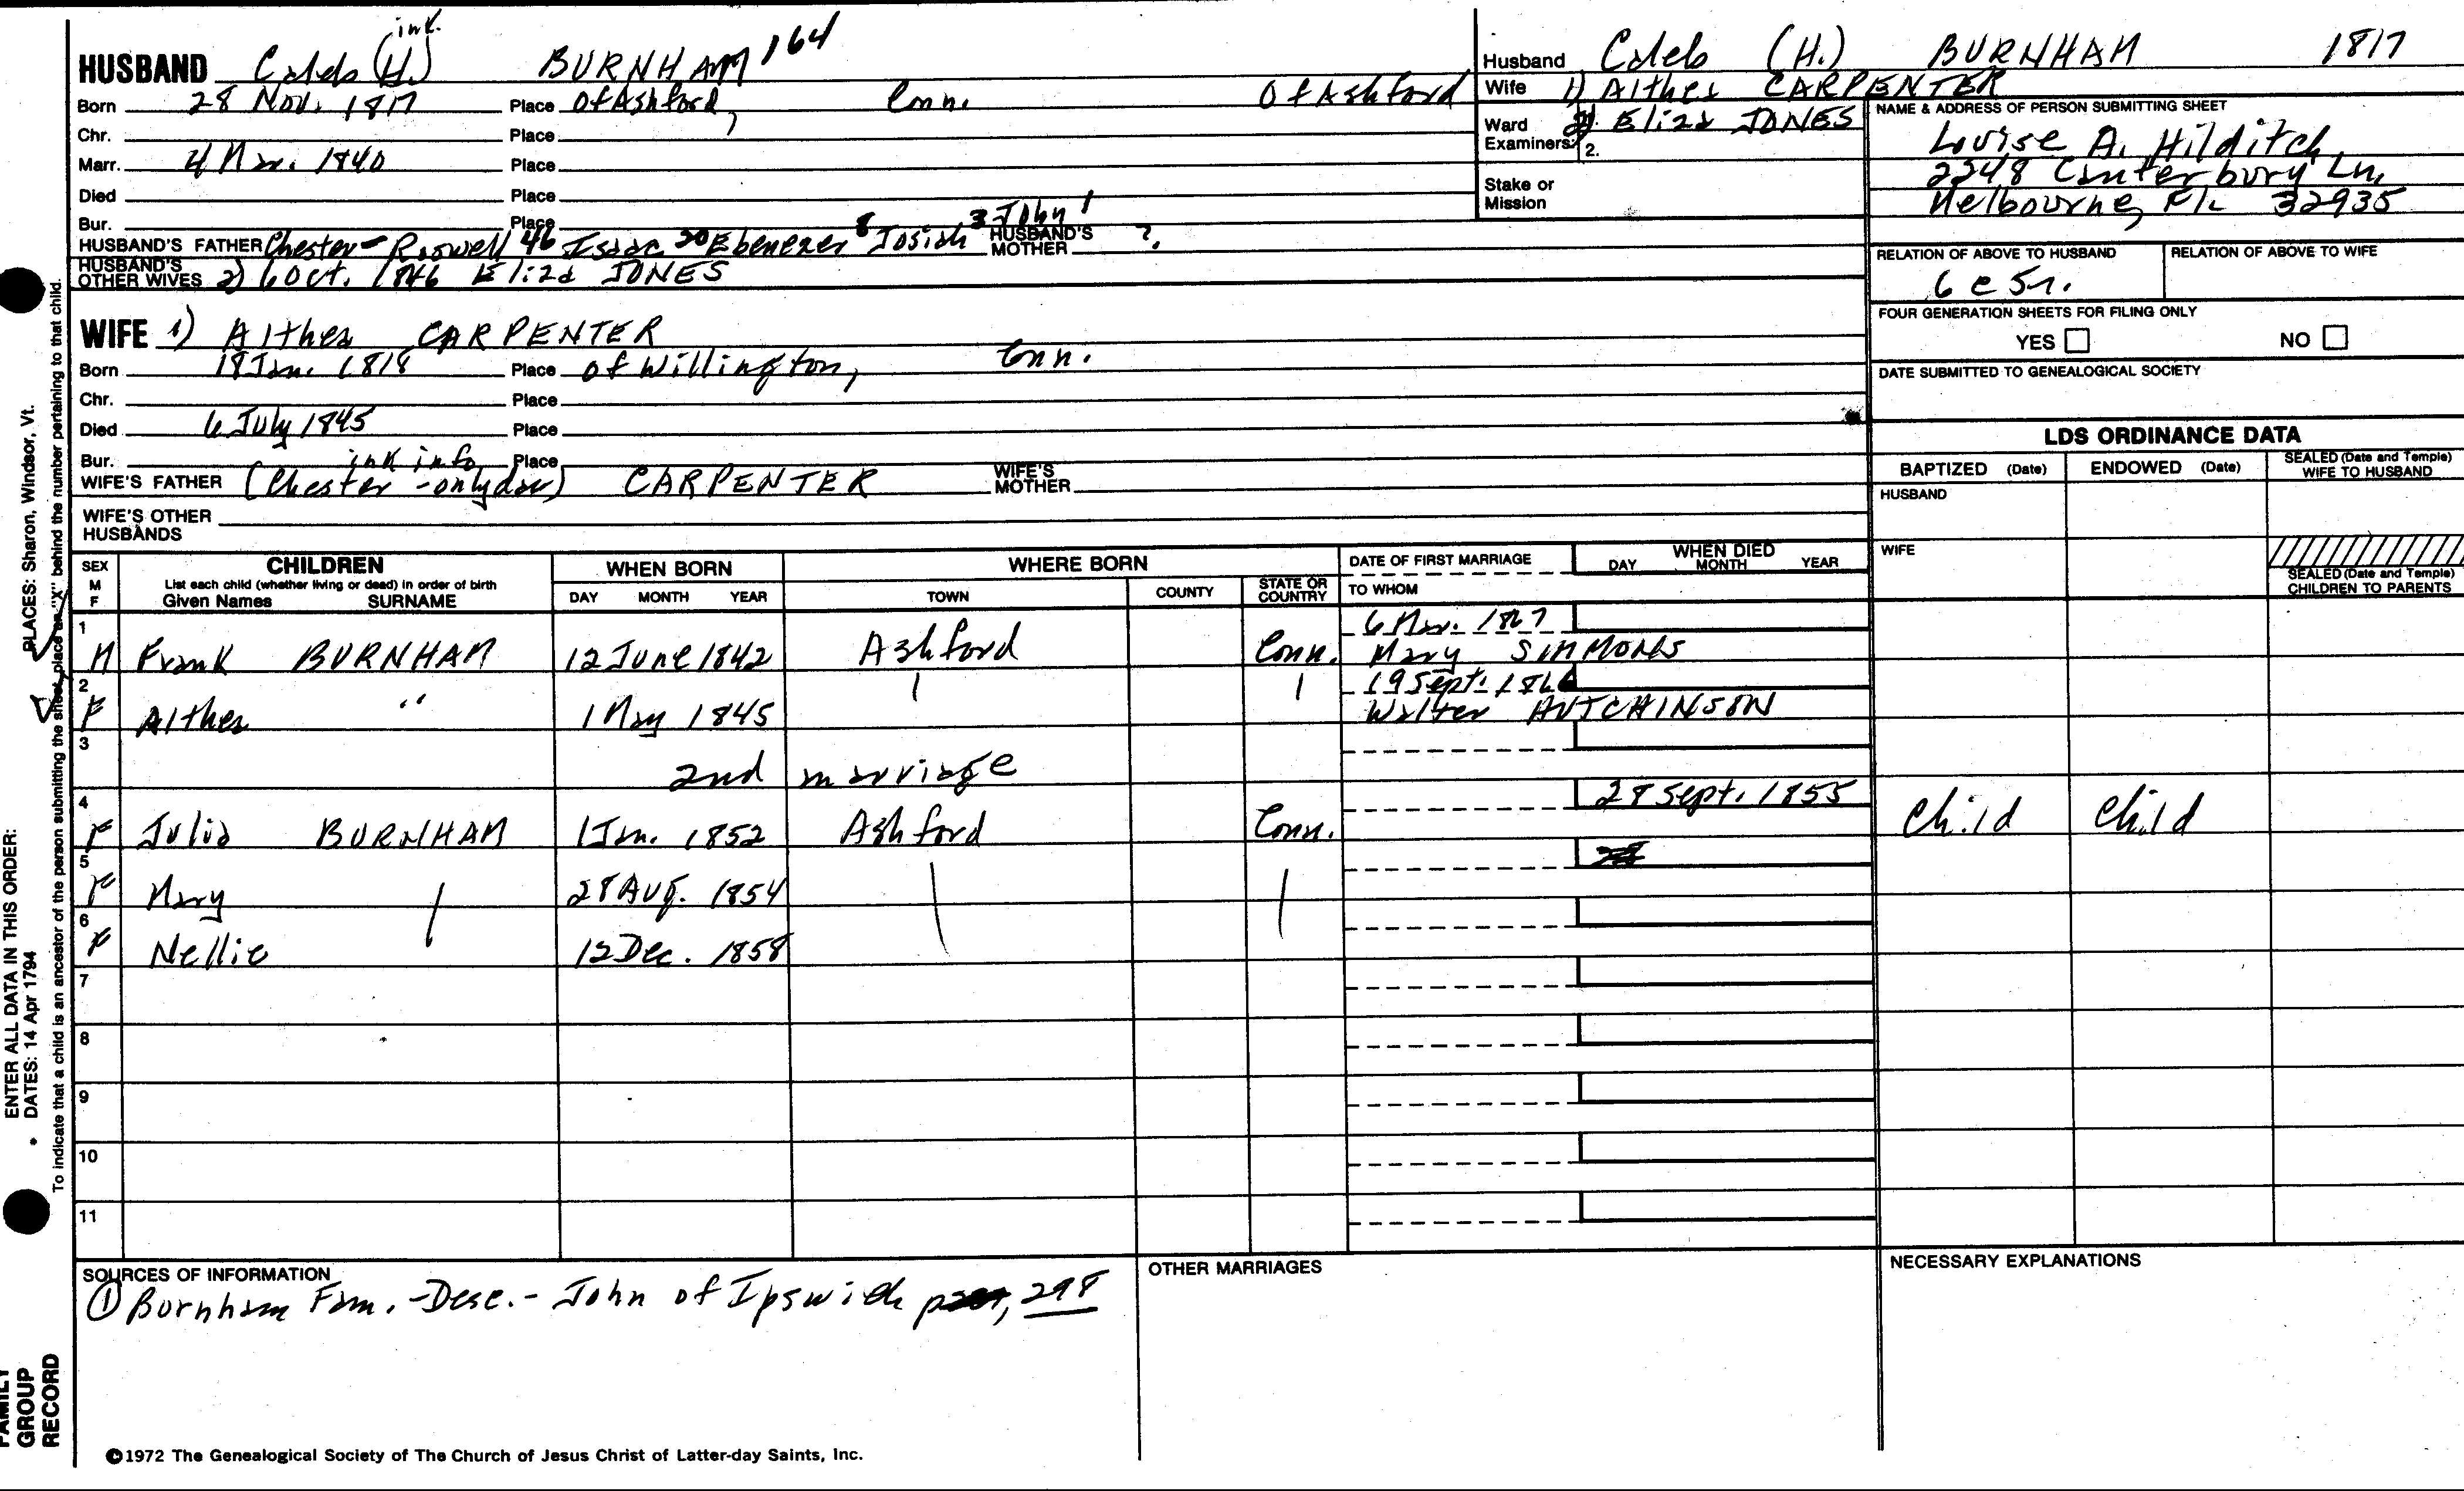 ink.
HUSBAND Caleb (H.) BURNHAM 164
Born 28 Nov. 1817 Place Of Ashford, Conn. Of Ashford
Chr. Place
Marr. 4 Mar. 1840 Place
Died Place
Bur. Place
HUSBAND'S FATHER Chester - Roswell 46 Isaac 20 Ebenezer 8 Josiah 3 John 1 HUSBAND'S MOTHER ?.
HUSBAND'S OTHER WIVES 2) 6 Oct. 1846 Eliza JONES
WIFE 1) Althea CARPENTER
Born 18 Jan. 1818 Place of Willington, Conn.
Chr. Place
Died 6 July 1845 Place
Bur. Place
ink info
WIFE'S FATHER (Chester - only dau) CARPENTER WIFE'S MOTHER
WIFE'S OTHER HUSBANDS
Husband Caleb (H.) BURNHAM 1817
Wife 1) Althea CARPENTER
Ward Examiners: 2) Eliza JONES
2.
Stake or Mission
NAME & ADDRESS OF PERSON SUBMITTING SHEET
Louise A. Hilditch
2248 Canterbury Ln,
Melbourne, Fl. 32935
RELATION OF ABOVE TO HUSBAND RELATION OF ABOVE TO WIFE
6 c 5r.
FOUR GENERATION SHEETS FOR FILING ONLY
YES NO
DATE SUBMITTED TO GENEALOGICAL SOCIETY
LDS ORDINANCE DATA
BAPTIZED (Date) ENDOWED (Date) SEALED (Date and Temple) WIFE TO HUSBAND
HUSBAND
WIFE
SEALED (Date and Temple) CHILDREN TO PARENTS
SEX M F CHILDREN WHEN BORN WHERE BORN DATE OF FIRST MARRIAGE WHEN DIED
List each child (whether living or dead) in order of birth
Given Names SURNAME DAY MONTH YEAR TOWN COUNTY STATE OR COUNTRY TO WHOM DAY MONTH YEAR
1 6 Mar. 1867
M Frank BURNHAM 12 June 1842 Ashford Conn. Mary SIMMONS
2 19 Sept. 1866
F Althea " 1 May 1845 Walter HUTCHINSON
3
2nd marriage
4 28 Sept. 1855
F Julia BURNHAM 1 Jan. 1852 Ashford Conn. Child Child
5
F Mary 28 Aug. 1854
6
F Nellie 12 Dec. 1858
7
8
9
10
11
SOURCES OF INFORMATION
① Burnham Fam. - Desc. - John of Ipswich p , 298
OTHER MARRIAGES
NECESSARY EXPLANATIONS
©1972 The Genealogical Society of The Church of Jesus Christ of Latter-day Saints, Inc.
ENTER ALL DATA IN THIS ORDER:
PLACES: Sharon, Windsor, Vt.
• DATES: 14 Apr 1794
To indicate that a child is an ancestor of the person submitting the sheet, place an "X" behind the number pertaining to that child.
FAMILY GROUP RECORD